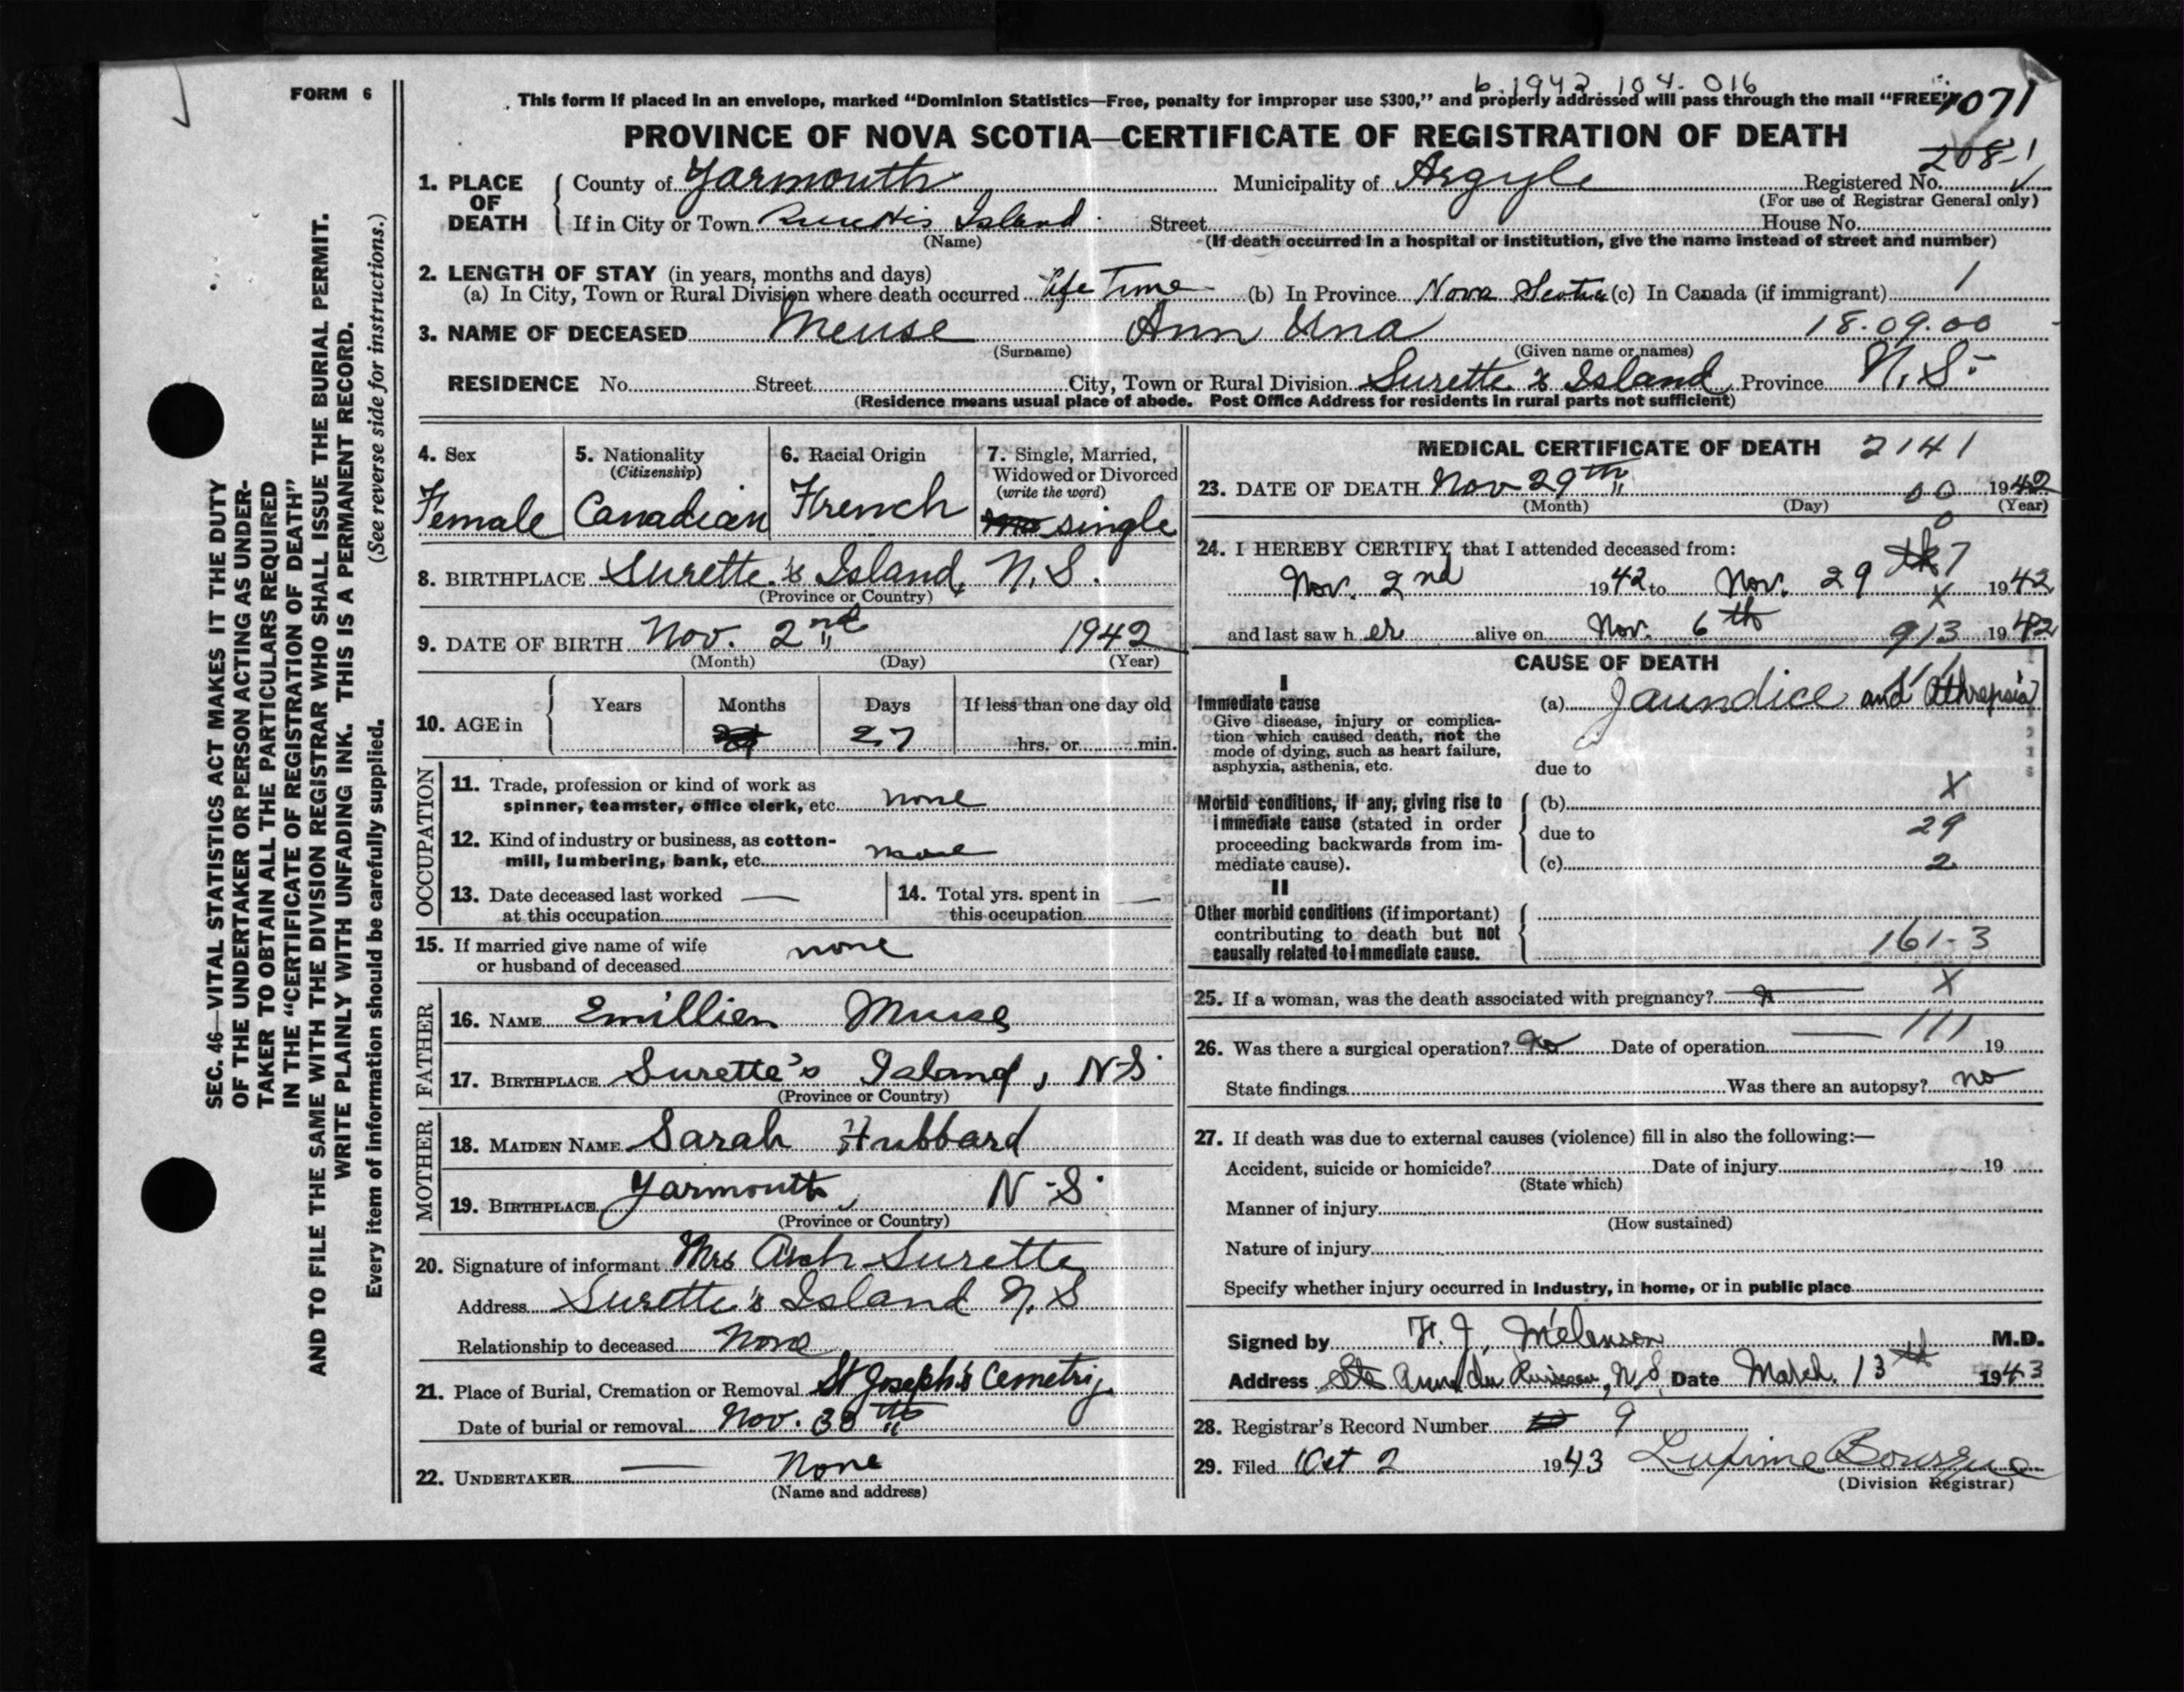 b. 1942 104-016
FORM 6
This form if placed in an envelope, marked “Dominion Statistics—Free, penalty for improper use $300,” and properly addressed will pass through the mail “FREE”
1071
PROVINCE OF NOVA SCOTIA—CERTIFICATE OF REGISTRATION OF DEATH
208-1
1. PLACE OF DEATH County of Yarmouth Municipality of Argyle Registered No.
(For use of Registrar General only)
If in City or Town Island Street House No.
(Name) (If death occurred in a hospital or institution, give the name instead of street and number)
2. LENGTH OF STAY (in years, months and days)
(a) In City, Town or Rural Division where death occurred Life Time (b) In Province Nova Scotia (c) In Canada (if immigrant) 1
3. NAME OF DECEASED Meuse Ann Una 18.09.00
(Surname) (Given name or names)
RESIDENCE No. Street City, Town or Rural Division Surette's Island Province N.S.
(Residence means usual place of abode. Post Office Address for residents in rural parts not sufficient)
4. Sex Female
5. Nationality (Citizenship) Canadian
6. Racial Origin French
7. Single, Married, Widowed or Divorced (write the word) single
8. BIRTHPLACE Surette's Island, N.S.
(Province or Country)
9. DATE OF BIRTH Nov. 2nd 1942
(Month) (Day) (Year)
10. AGE in Years Months Days If less than one day old
27 hrs. or min.
OCCUPATION
11. Trade, profession or kind of work as
spinner, teamster, office clerk, etc. none
12. Kind of industry or business, as cotton-
mill, lumbering, bank, etc. none
13. Date deceased last worked —
at this occupation
14. Total yrs. spent in —
this occupation
15. If married give name of wife none
or husband of deceased
FATHER
16. NAME Emillien Muise
17. BIRTHPLACE Surette's Island, N.S.
(Province or Country)
MOTHER
18. MAIDEN NAME Sarah Hubbard
19. BIRTHPLACE Yarmouth, N.S.
(Province or Country)
20. Signature of informant Mrs Arch Surette
Address Surette's Island N.S
Relationship to deceased None
21. Place of Burial, Cremation or Removal St Joseph's Cemetriy
Date of burial or removal Nov. 30th
22. UNDERTAKER — None
(Name and address)
MEDICAL CERTIFICATE OF DEATH 2141
23. DATE OF DEATH Nov 29th 00 1942
(Month) (Day) (Year)
0
24. I HEREBY CERTIFY that I attended deceased from: 7
Nov. 2nd 1942 to Nov. 29 x 1942
and last saw her alive on Nov. 6th 913 1942
CAUSE OF DEATH
I
Immediate cause (a) Jaundice and Athrepsia
Give disease, injury or complica-
tion which caused death, not the
mode of dying, such as heart failure,
asphyxia, asthenia, etc. due to
X
Morbid conditions, if any, giving rise to (b)
immediate cause (stated in order due to 29
proceeding backwards from im-
mediate cause). (c) 2
II
Other morbid conditions (if important)
contributing to death but not
causally related to immediate cause. 161-3
25. If a woman, was the death associated with pregnancy? X
111
26. Was there a surgical operation? no Date of operation — 19
State findings Was there an autopsy? no
27. If death was due to external causes (violence) fill in also the following:—
Accident, suicide or homicide? Date of injury 19
(State which)
Manner of injury
(How sustained)
Nature of injury
Specify whether injury occurred in Industry, in home, or in public place
Signed by F. J. Melanson M.D.
Address Ste Anne du Ruisseau, N.S. Date March 13th 1943
28. Registrar's Record Number 9
29. Filed Oct 2 1943 Bourque
(Division Registrar)
SEC. 46—VITAL STATISTICS ACT MAKES IT THE DUTY
OF THE UNDERTAKER OR PERSON ACTING AS UNDER-
TAKER TO OBTAIN ALL THE PARTICULARS REQUIRED
IN THE “CERTIFICATE OF REGISTRATION OF DEATH”
AND TO FILE THE SAME WITH THE DIVISION REGISTRAR WHO SHALL ISSUE THE BURIAL PERMIT.
WRITE PLAINLY WITH UNFADING INK. THIS IS A PERMANENT RECORD.
Every item of information should be carefully supplied. (See reverse side for instructions.)